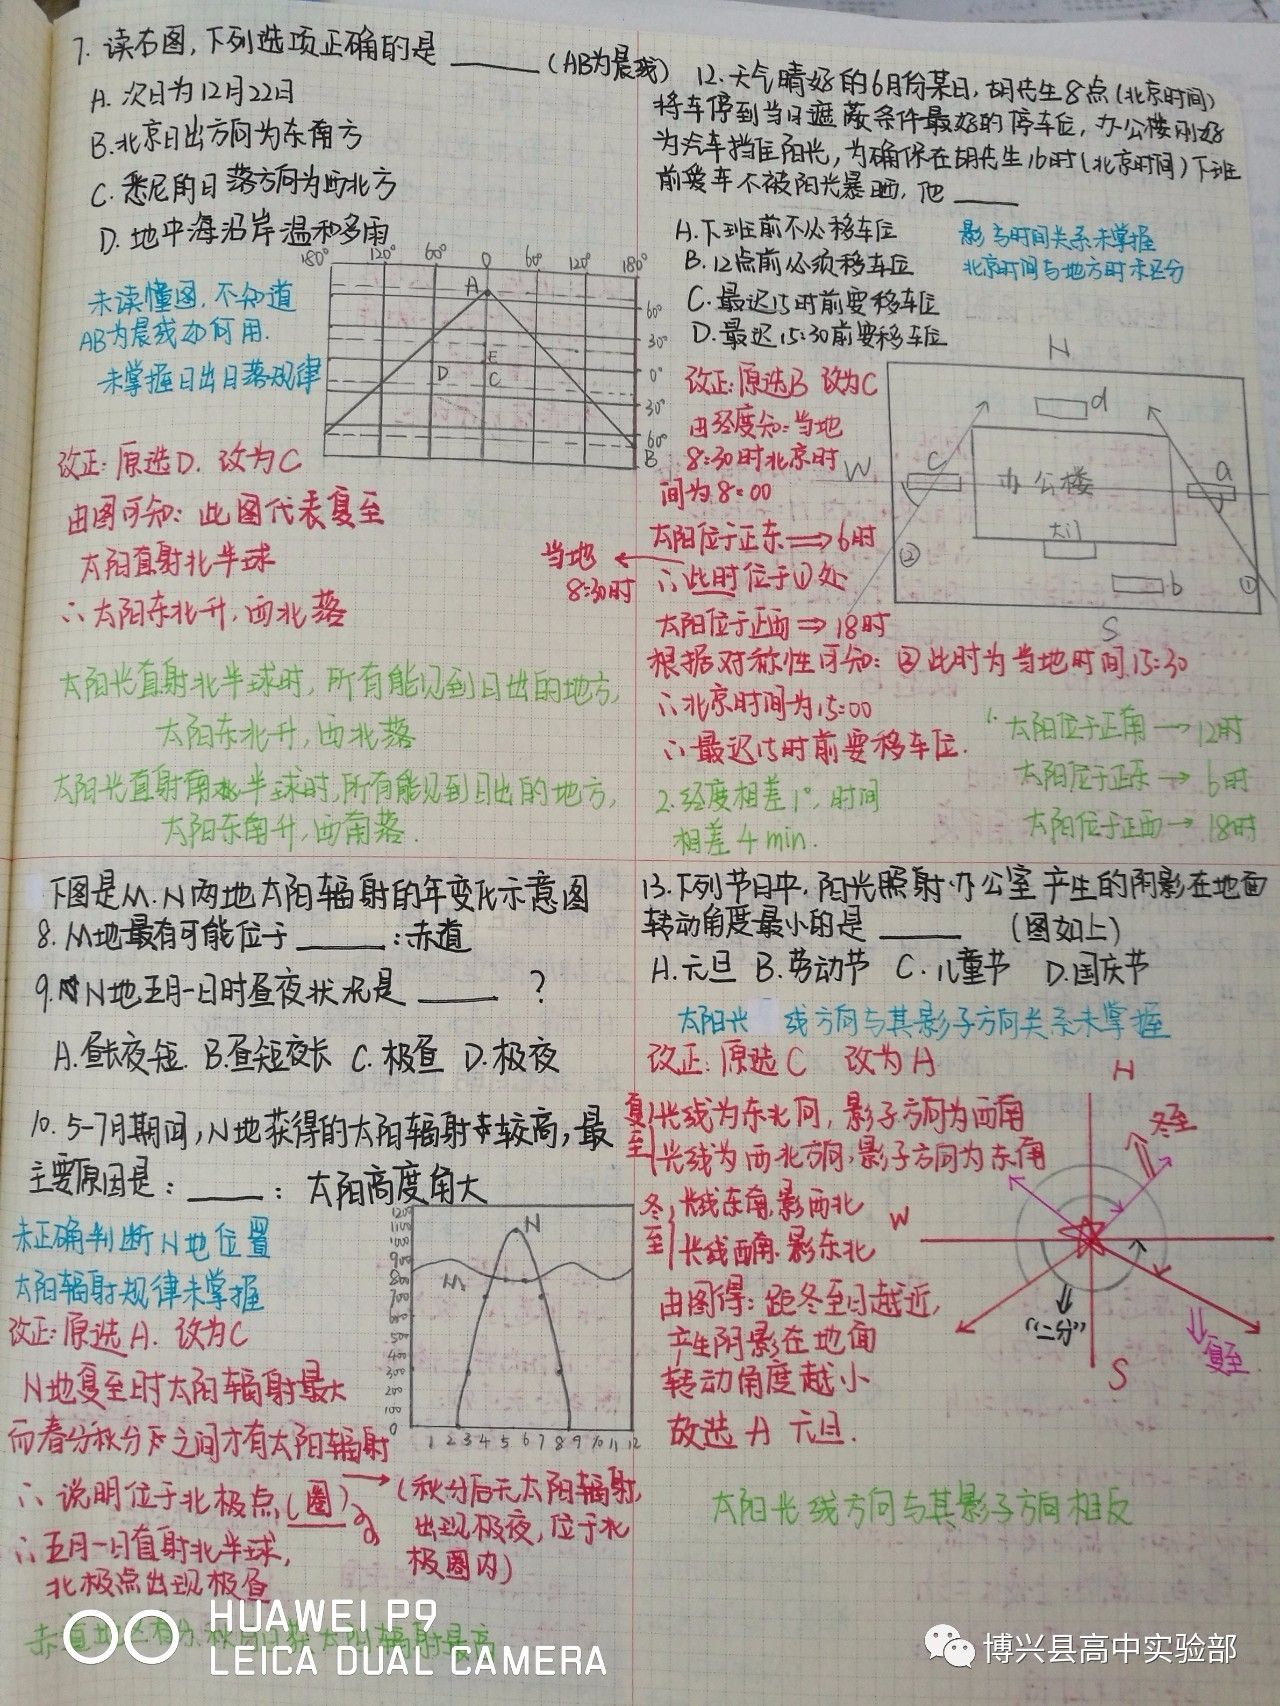 7. 读右图,下列选项正确的是 ______ (AB为晨线)
A. 次日为12月22日
B. 北京日出方向为东南方
C. 悉尼的日落方向为西北方
D. 地中海沿岸温和多雨
未读懂图,不知道
AB为晨线如何用.
未掌握日出日落规律
180° 120° 60° 0 60° 120° 180°
A
60°
30°
E
D C 0°
30°
60°
B
改正:原选D. 改为C
由图可知:此图代表夏至
太阳直射北半球
∴太阳东北升,西北落
太阳光直射北半球时,所有能见到日出的地方,
太阳东北升,西北落
太阳光直射南半球时,所有能见到日出的地方,
太阳东南升,西南落.
12.天气晴好的6月份某日,胡先生8点(北京时间)
将车停到当日遮蔽条件最好的停车位,办公楼刚好
为汽车挡住阳光,为确保在胡先生16时(北京时间)下班
前爱车不被阳光暴晒,他 ____
A.下班前不必移车位
B.12点前必须移车位
C.最迟15时前要移车位
D.最迟15:30前要移车位
影与时间关系未掌握
北京时间与地方时未区分
改正:原选B 改为C
由经度知:当地
8:30时北京时
间为8:00
太阳位于正东⟹6时
∴此时位于①处
当地
8:30时
太阳位于正西⟹18时
根据对称性可知:②此时为当地时间15:30
∴北京时间为15:00
∴最迟15时前要移车位.
N
d
W
c
办公楼
a
大门
②
b
①
S
1.太阳位于正南→12时
太阳位于正东→6时
太阳位于正西→18时
2.经度相差1°,时间
相差4min.
下图是M.N两地太阳辐射的年变化示意图
8.M地最有可能位于 ____ :赤道
9.N地五月一日时昼夜状况是 ____ ?
A.昼长夜短. B.昼短夜长 C.极昼 D.极夜
10. 5-7月期间,N地获得的太阳辐射较高,最
主要原因是: ____ : 太阳高度角大
未正确判断N地位置
太阳辐射规律未掌握
改正:原选A. 改为C
N地夏至时太阳辐射最大
而春分秋分之间才有太阳辐射
∴说明位于北极点(圈)
(秋分后无太阳辐射,
出现极夜,位于北
极圈内)
∴五月一日直射北半球,
北极点出现极昼
N
M
1200
1100
1000
900
800
700
600
500
400
300
200
100
0
1 2 3 4 5 6 7 8 9 10 11 12
13.下列节日中,阳光照射办公室产生的阴影在地面
转动角度最小的是 ____ (图如上)
A.元旦 B.劳动节 C.儿童节 D.国庆节
太阳光线方向与其影子方向关系未掌握
改正:原选C 改为A
夏至
光线为东北向,影子方向为西南
光线为西北方向,影子方向为东南
冬至
光线东南,影西北
光线西南.影东北
由图得:距冬至日越近,
产生阴影在地面
转动角度越小
故选A 元旦.
N
冬至
W
"二分"
夏至
S
太阳光线方向与其影子方向相反
HUAWEI P9
LEICA DUAL CAMERA
博兴县高中实验部